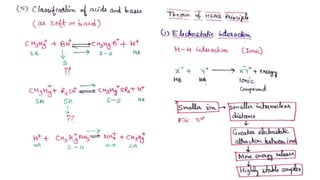 (5) Classification of acids and bases
(as soft or hard)
CH3Hg+ + BH+ ⇌ CH3HgB+ + H+
SA S-S HA
S
??
CH3Hg+ + R2S ⇌ CH3Hg+SR2 + H+
SA SA S-S HA
??
H+ + CH3Hg+NH3 ⇌ NH4+ + CH3Hg+
HA S-H H-H SA
Theory of HSAB Principle
(1) Electrostatic interaction
H-H interaction (Ionic)
X- + Y+ → X-Y+ + energy
HB HA Ionic
compound
Smaller ion → Smaller internuclear
distance
Greater electrostatic
attraction between ions
More energy release
Highly stable complex